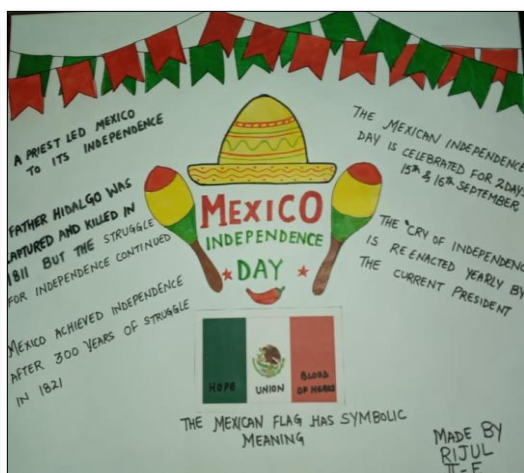 A PRIEST LED MEXICO
TO ITS INDEPENDENCE
FATHER HIDALGO WAS
CAPTURED AND KILLED IN
1811 BUT THE STRUGGLE
FOR INDEPENDENCE CONTINUED
MEXICO ACHIEVED INDEPENDENCE
AFTER 300 YEARS OF STRUGGLE
IN 1821
MEXICO
INDEPENDENCE
DAY
THE MEXICAN INDEPENDENCE
DAY IS CELEBRATED FOR 2DAYS
15th & 16th SEPTEMBER
THE "CRY OF INDEPENDENC
IS RE ENACTED YEARLY BY
THE CURRENT PRESIDENT
HOPE
UNION
BLOOD
OF HEROS
THE MEXICAN FLAG HAS SYMBOLIC
MEANING
MADE BY
RIJUL